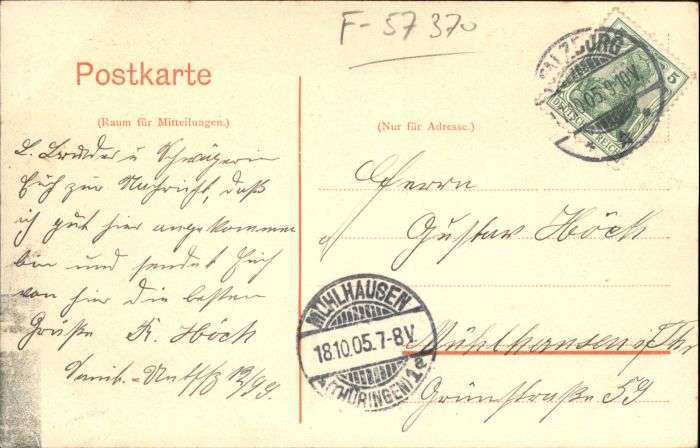 F-57370
Postkarte
(Raum für Mitteilungen.)
L. Bruder u Schwägerin
Euch zur Nachricht, daß
ich gut hier angekommen
bin und sendet Euch
von hier die besten
Grüße K. Höck
(Nur für Adresse.)
Herrn
Gustav Höck
Mühlhausen i/Thr
Grünstraße 59
MÜHLHAUSEN
18.10.05.7-8V.
(THÜRINGEN) 1a
LZBURG
.05.9-10V.
5
DEUTSCHES REICH